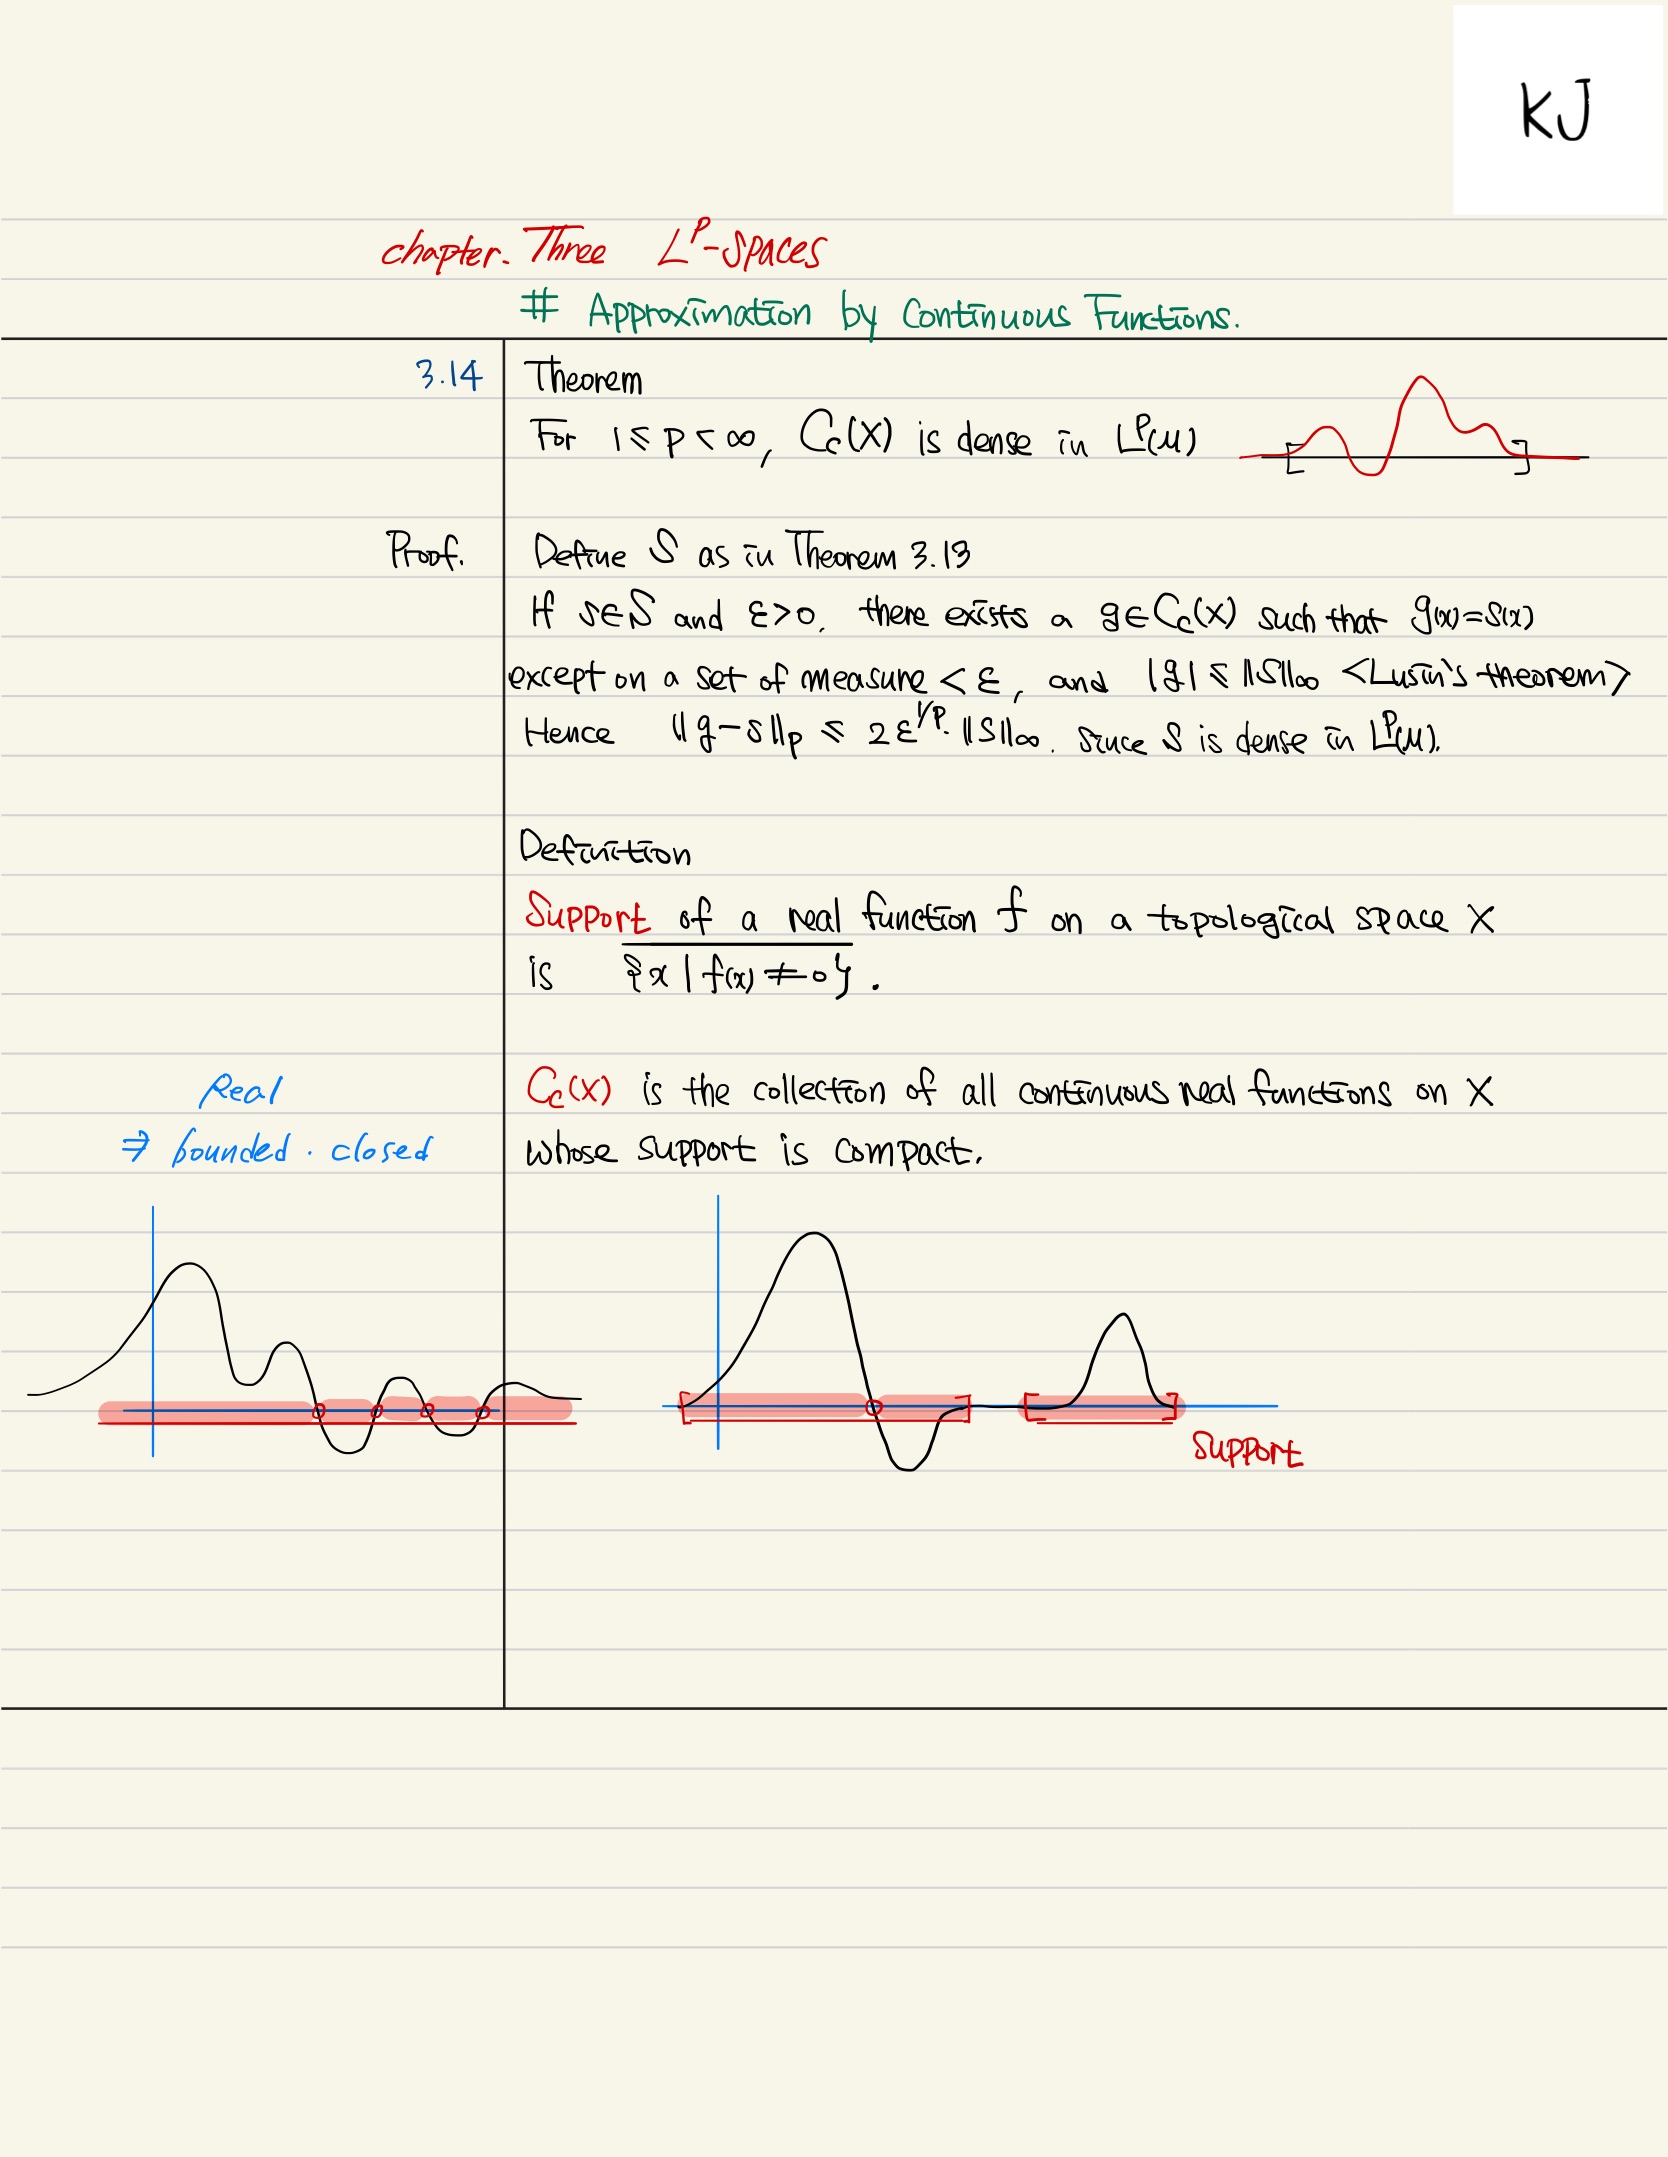 KJ
chapter. Three L^p-spaces
# Approximation by Continuous Functions.
3.14 Theorem
For 1 ≤ p < ∞, C_c(X) is dense in L^p(μ)
Proof. Define S as in Theorem 3.13
If s∈S and ε>0, there exists a g∈C_c(X) such that g(x)=s(x)
except on a set of measure < ε, and |g| ≤ ||s||_∞ <Lusin's theorem>
Hence ||g-s||_p ≤ 2ε^{1/p}·||s||_∞. since S is dense in L^p(μ).
Definition
Support of a real function f on a topological space X
is \overline{{x | f(x) ≠ 0}}.
Real C_c(X) is the collection of all continuous real functions on X
⇒ bounded · closed whose support is compact.
[ ]
[ ] [ ]
Support